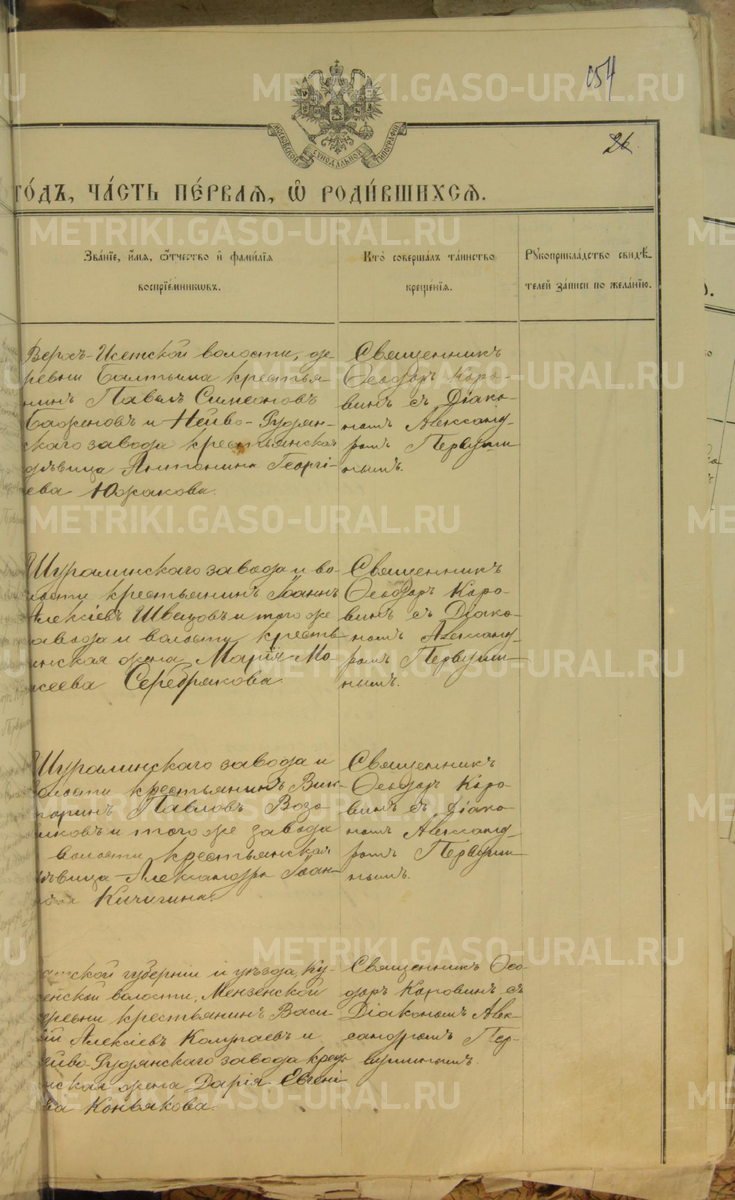 054
26
МОСКОВСКОЙ СѴНОДАЛЬНОЙ ТИПОГРАФІИ
го́дъ, ча́сть пе́рвая, ѡ҆ роди́вшихся.
Зва́нїе, и҆́мя, ѻ҆́тчество и҆ фами́лїя
воспрїе́мникѡвъ.
Кто̀ соверша́лъ та́инство
креще́нїя.
Рꙋкоприкла́дство свидѣ́-
телей за́писи по жела́нїю.
Верхъ-Исетской волости, де
ревни Балтыма крестья-
нинъ Павелъ Симеоновъ
Баженовъ и Нейво-Рудян-
скаго завода крестьянская
дѣвица Антонина Георгі-
ева Южакова.
Священникъ
Ѳеодоръ Коро-
винъ съ Діако-
номъ Александ-
ромъ Первуши-
нымъ.
Шуралинскаго завода и во-
лости крестьянинъ Іоаннъ
Алексіевъ Швецовъ и того же
завода и волости кресть-
янская жена Марія Мо-
исеева Серебрякова.
Священникъ
Ѳеодоръ Коро-
винъ съ Діако-
номъ Александ-
ромъ Первуши-
нымъ.
Шуралинскаго завода и
волости крестьянинъ Вик-
торинъ Павловъ Возо-
миковъ и того же завода
и волости крестьянская
дѣвица Александра Іоан-
нова Кичигина.
Священникъ
Ѳеодоръ Коро-
винъ съ Діако-
номъ Александ-
ромъ Первуши-
нымъ.
Вятской губерніи и уѣзда, Ку-
менской волости, Мензенской
деревни крестьянинъ Васи-
лій Алексіевъ Колупаевъ и
Нейво-Рудянскаго завода кресть-
янская жена Дарія Евгені-
ева Коньякова.
Священникъ Ѳео-
доръ Коровинъ съ
Діакономъ Алек-
сандромъ Пер-
вушинымъ.
METRIKI.GASO-URAL.RU
METRIKI.GASO-URAL.RU
METRIKI.GASO-URAL.RU
METRIKI.GASO-URAL.RU
METRIKI.GASO-URAL.RU
METRIKI.GASO-URAL.RU
METRIKI.GASO-URAL.RU
METRIKI.GASO-URAL.RU